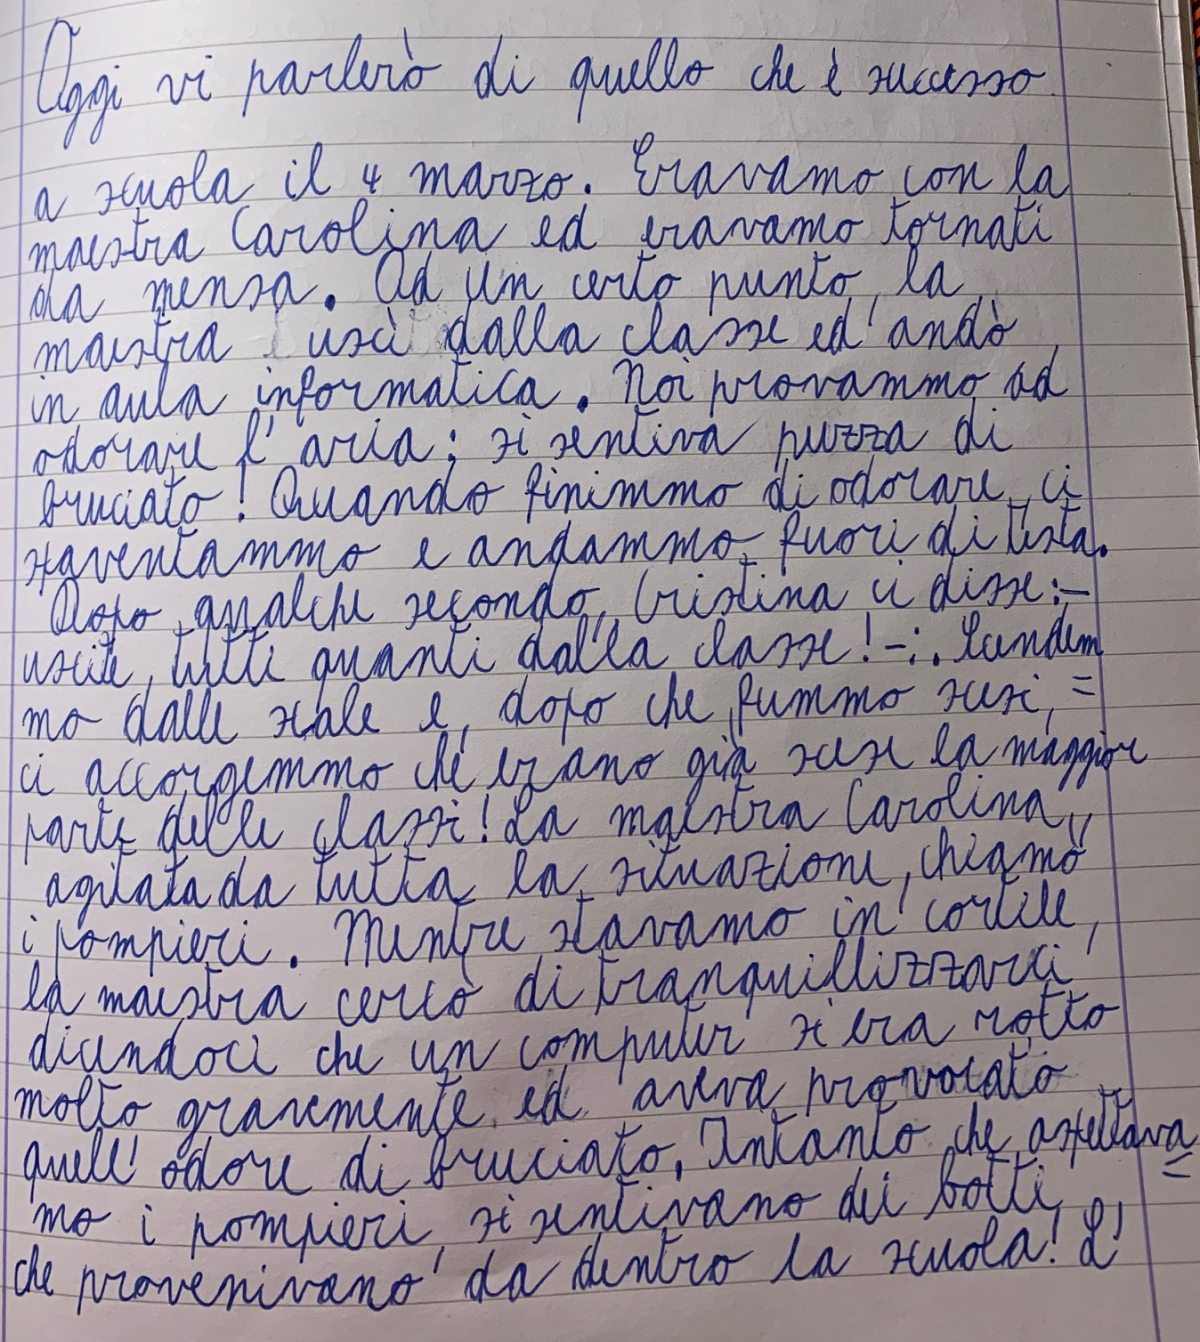 Oggi vi parlerò di quello che è successo
a scuola il 4 marzo. Eravamo con la
maestra Carolina ed eravamo tornati
da mensa. Ad un certo punto, la
maestra uscì dalla classe ed andò
in aula informatica. Noi provammo ad
odorare l'aria: si sentiva puzza di
bruciato! Quando finimmo di odorare, ci
spaventammo e andammo fuori di testa.
Dopo qualche secondo, Cristina ci disse:-
uscite, tutti quanti dalla classe!-:. Scendem
mo dalle scale e, dopo che fummo scesi, =
ci accorgemmo che erano già scese la maggior
parte delle classi! La maestra Carolina,
agitata da tutta la situazione, chiamò
i pompieri. Mentre stavamo in cortile,
la maestra cercò di tranquillizzarci
dicendoci che un computer si era rotto
molto gravemente ed aveva provocato
quell'odore di bruciato. Intanto che aspettava
mo i pompieri, si sentivano dei botti =
che provenivano da dentro la scuola! L'